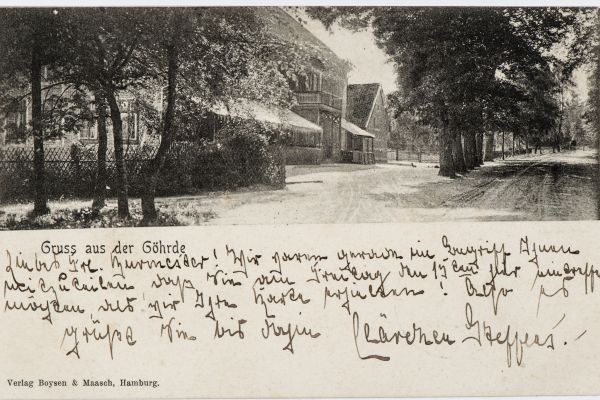 Gruss aus der Göhrde
Liebes Frl. Burmeister! Wir waren gerade im Begriff Ihnen
mitzuteilen daß Sie am Freitag den 15 hier
möchten als wir Ihre Karte erhielten! Also es
grüßt Sie bis dahin Clärchen Steffens.
Verlag Boysen & Maasch, Hamburg.